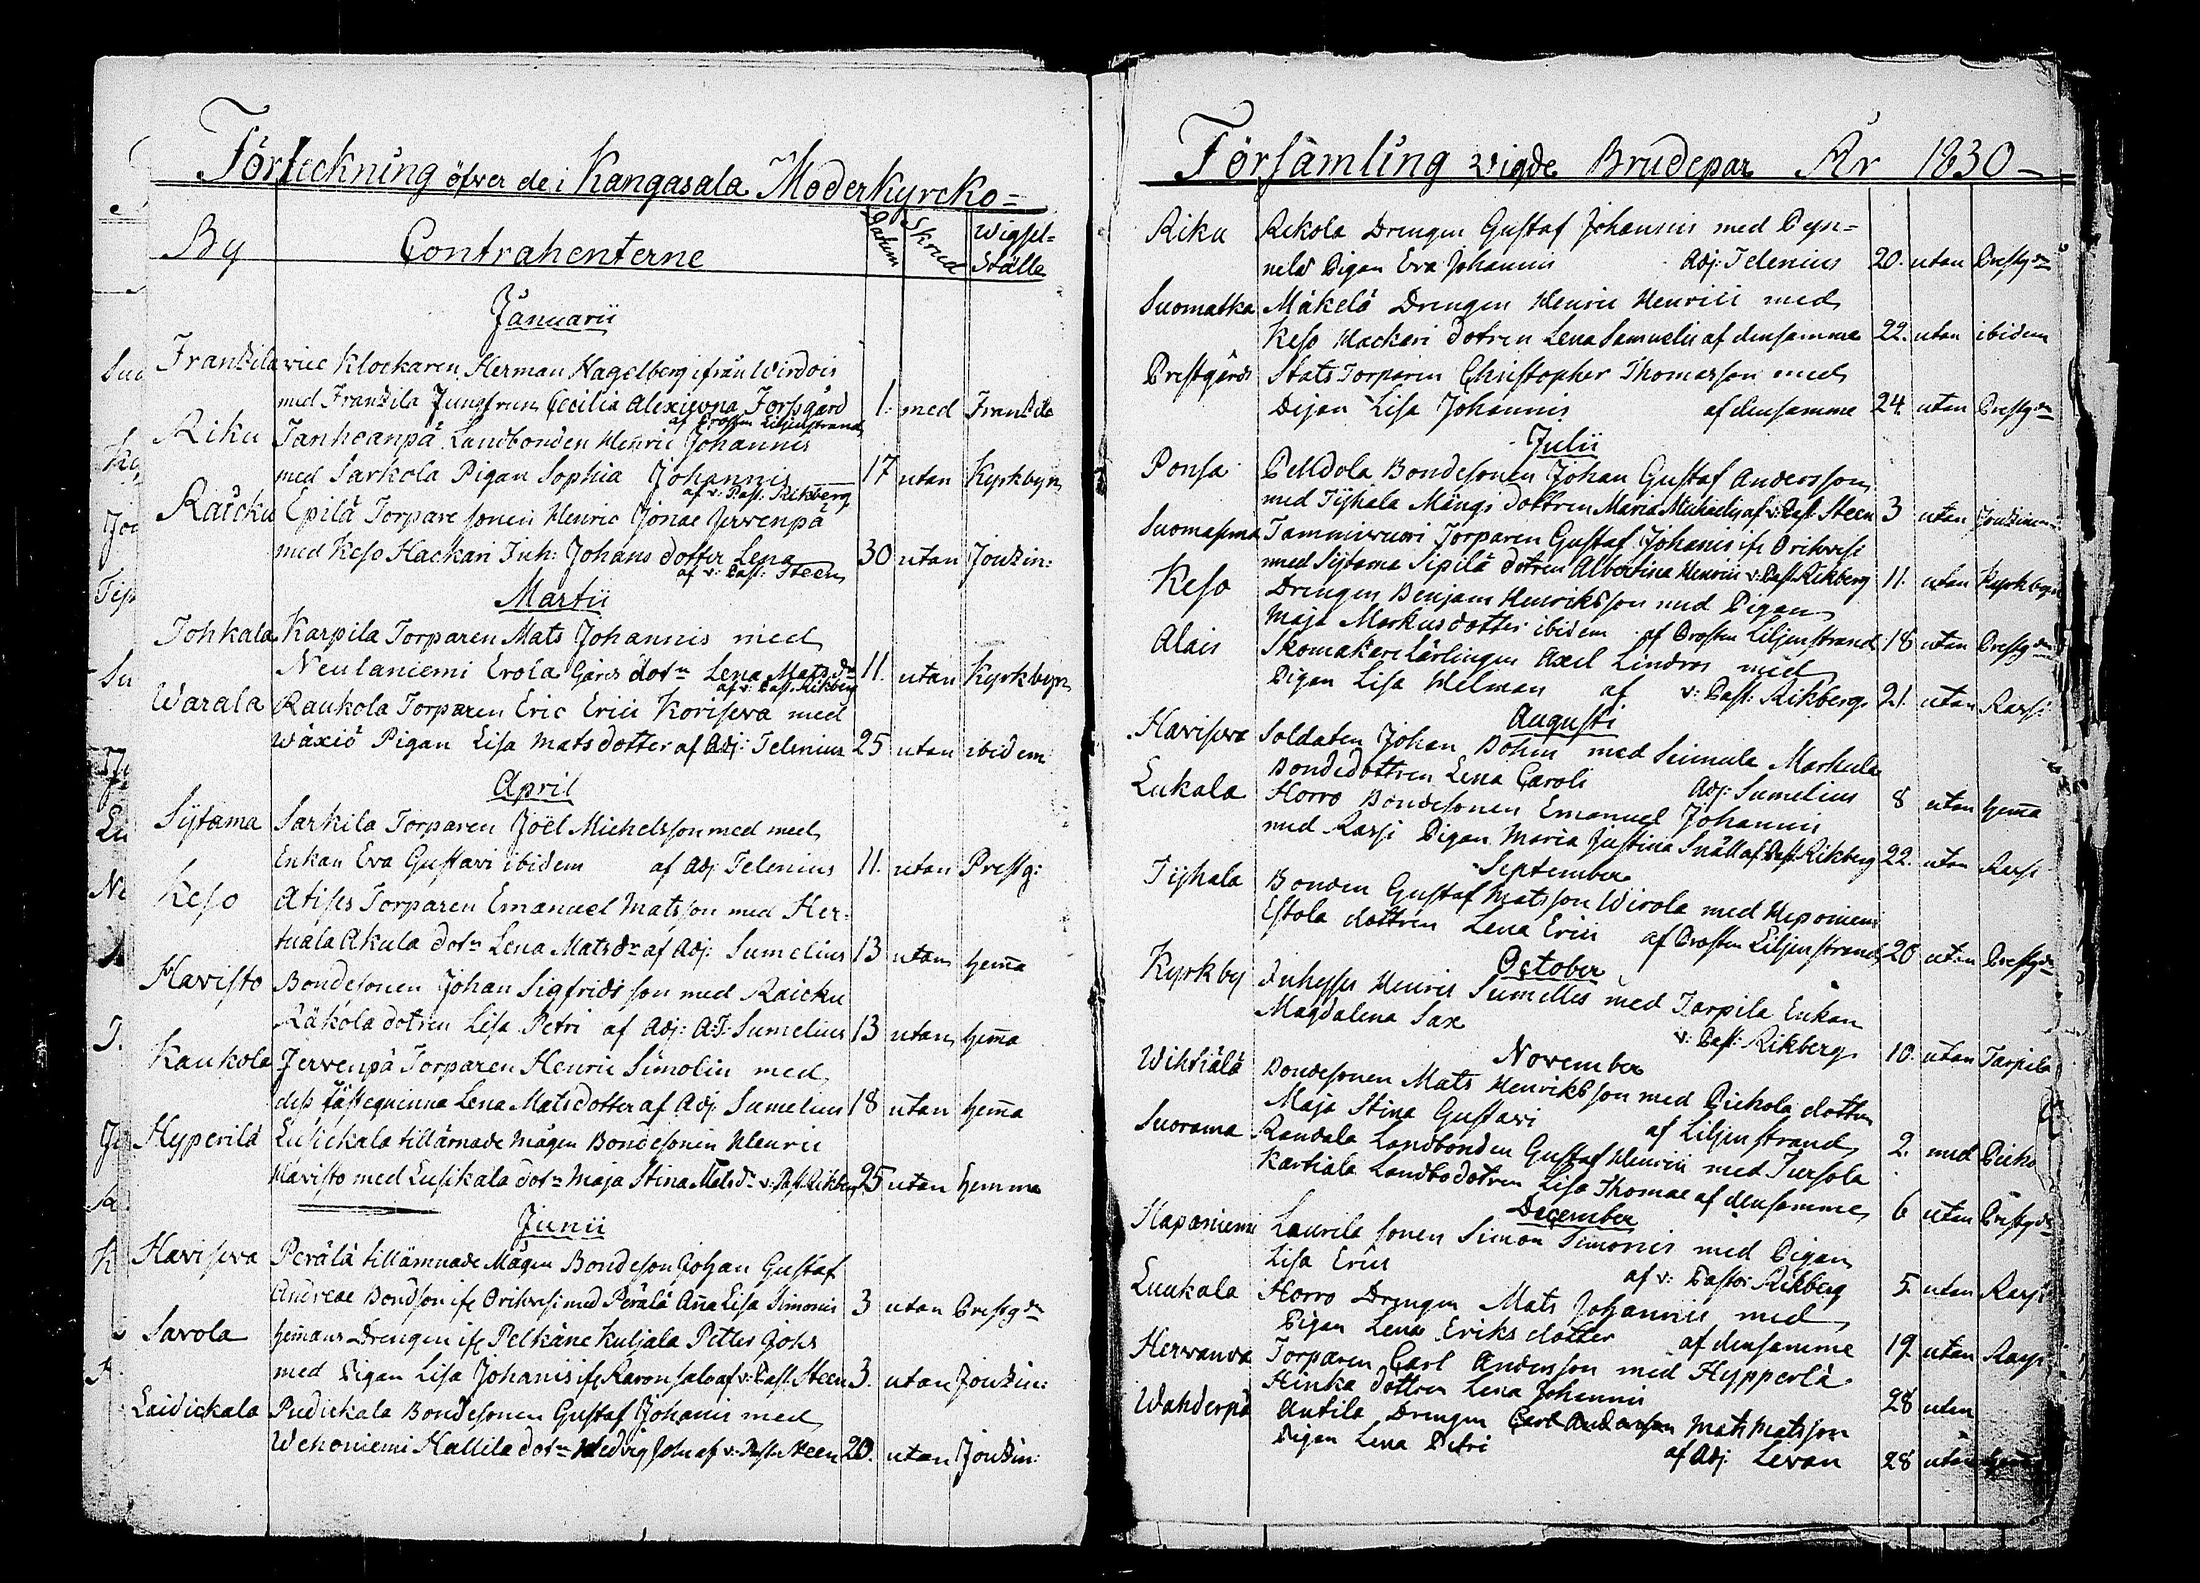 Förteckning öfver de i Kangasala Moderkyrcko=
By Contrahenterne Datum Skrud Wigsel=
Ställe
Januarii
Frantzila vice Klockaren Herman Hagelberg ifrån Wirdois
med Frantzila Jungfrun Cecilia Alexievna Forsgård 1. med Frantzila
af Prosten Liljenstrand
Riku Tanhoanpä Landbonden Henric Johannis
med Sarkola Pigan Sophia Johannis 17 utan Kyrkbyn
af v: Past. Rikberg
Raicku Epilä Torpare sonen Henric Jonae Jervenpä
med Keso Hackari Inh: Johans dotter Lena 30 utan Joutzin:
af v: Past: Steen
Martii
Tohkala Karpila Torparen Mats Johannis med
Neulaniemi Erola Gårds dotn Lena Mats dr 11. utan Kyrkbyn
af v: Past. Rikberg
Warala Raukola Torparen Eric Erici Koriseva med
Wäxiö Pigan Lisa Matsdotter af Adj: Telenius 25 utan ibidem
April
Sijtama Sarkila Torparen Joël Michelsson med med
Enkan Eva Gustavi ibidem af Adj Telenius 11. utan Prestg:
Keso Atises Torparen Emanuel Matsson med Her=
tuala Akula dotn Lena Matsdr af Adj: Sumelius 13 utan hem̄a
Havisto Bondesonen Johan Sigfridsson med Raicku
Räkola dotren Lisa Petri af Adj: A:J: Sumelius 13 utan hem̄a
Kaukola Jervenpä Torparen Henric Simolin med
dess fästeqvinna Lena Matsdotter af Adj Sumelius 18 utan hem̄a
Hyperilä Lusickala tillärnade mågen Bondesonen Henric
Havisto med Lusikala dotn Maja Stina Matsdr v: Past. Rikberg 25 utan hemma
Junii
Haviseva Perälä tillämnade Mågen Bondeson Johan Gustaf
Andreae Bondson ifr Orihvesi med Perälä An̄a Lisa Simonis 3 utan Prestgdn
Savola hem̄ans Drengen ifr Pelkäne Kuljala Petter Johs
med Pigan Lisa Johanis ifr Karonsalo af v: Past. Steen 3. utan Joutzin:
Laidickala Pudickala Bondesonen Gustaf Johanis med
Wehoniemi Hallila dotn Hedvig Joh: af v: Past: Steen 20. utan Joutzin:
Församling vigde Brudepar År 1830
Riku Rekola Drengen Gustaf Johannis med
Pigan Eva Johannis Adj: Telenius 20. utan Prestgdn
Suomatka Mäkelä Drengen Henric Henrici med
Keso Hackari dotren Lena Samuelis af densamme 22. utan ibidem
Prestgårds Stats Torparen Christopher Thomasson med
Dejan Lisa Johannis af densamme 24. utan Prestgdn
Julii
Ponsa Peltdola Bondesonen Johan Gustaf Andersson
med Tijhala Mångs dottren Maria Michaelis af v: Past. Steen 3 utan
Suomasema Tammivuori Torparen Gustaf Johanis ifr Orihvesi
med Sijtama Sipilä dotren Albertina Henrici v: Past. Rikberg 11. utan Kyrkbyn
Keso Drengen Benjam Henriksson med Pigan
Maja Markusdotter ibidem af Prosten Liljenstrand 18 utan Prestgdn
Alais Skomakare Lärlingen Axel Lindros med
Pigan Lisa Helman af v: Past: Rikberg. 21. utan Rassi
Augusti
Haviseva Soldaten Johan Bohm med Seimula Markula
Bondedottren Lena Caroli Adj: Sumelius 8 utan hem̄a
Lukala Horro Bondesonen Emanuel Johannis
med Rassi Pigan Maria Justina Snäll af Past. Rikberg 22. utan Rassi
September
Tijhala Bonden Gustaf Matsson Wirola med Heponiemi
Estola dottren Lena Erici af Prosten Liljenstrand 20 utan Prestgdn
October
Kyrkby Inhyses Henric Sumelles med Tarpila Enkan
Magdalena Sax v: Past: Rikberg. 10. utan Tarpila
November
Wihtiälä Bondesonen Mats Henriksson med Pickola dottren
Maja Stina Gustavi af Liljenstrand 2. med
Suorama Randala Landbonden Gustaf Henrici med Tursola
Kartiala Landbodotren Lisa Thomae af densamme 6 utan Prestgdn
December
Haponiemi Laurila sonen Simon Simonis med Pigan
Lisa Erici af v: Pastor Rikberg 5. utan Rassi
Luukala Horro Drengen Mats Johannis med
Pigan Lena Eriks dotter af densamme 19. utan Rassi
Hervanda Torparen Carl Andersson med Hypperlä
Hinka dottren Lena Johannis 28 utan
Wahderpä Antila Drengen Carl Andersson Mats Matsson
Pigan Lena Petri af Adj Levan 28 utan